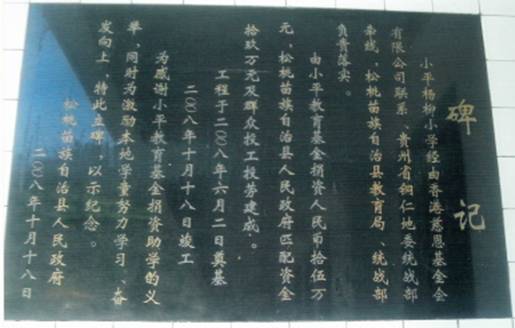 碑记
小平杨柳小学经由香港慈恩基金会
有限公司联系、贵州省铜仁地委统战部
牵线，松桃苗族自治县教育局、统战部
负责落实。
由小平教育基金捐资人民币拾伍万
元，松桃苗族自治县人民政府匹配资金
拾玖万元及群众投工投劳建成。
工程于二〇〇八年六月二日奠基
二〇〇八年十月十八日竣工
为感谢小平教育基金捐资助学的义
举，同时为激励本地学童努力学习、奋
发向上，特此立碑，以示纪念。
松桃苗族自治县人民政府
二〇〇八年十月十八日